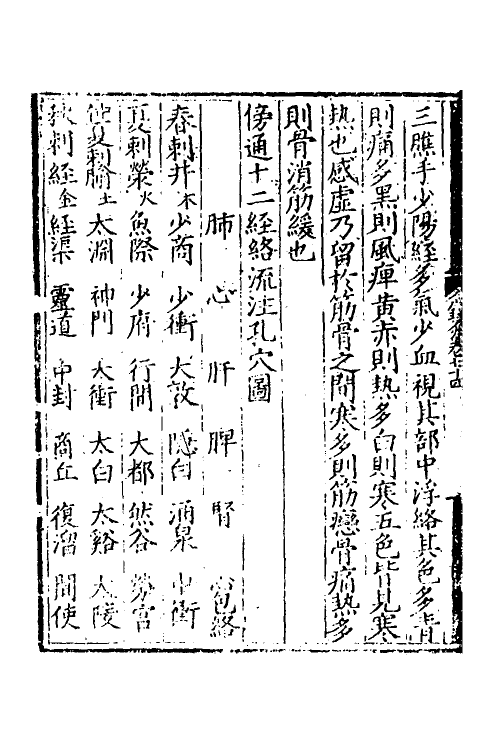 三瞧手少陽經多氣少血視其部中浮絡其色多青
則痛多黑則風痺黃赤則热多白則寒五色皆見寒
热也感虛乃留於筋骨之間寒多則筋戀骨痛热多
則骨消筋緩也
傍通十二經絡流注孔穴圖
肺 心 肝 脾 腎 心包絡
春刺井木 少商 少衝 大敦 隱白 涌泉 中衝
夏刺滎火 魚際 少府 行間 大都 然谷 勞宮
仲夏刺腧土 太淵 神門 太衝 太白 太谿 大陵
秋刺經金 經渠 靈道 中封 商丘 復溜 間使